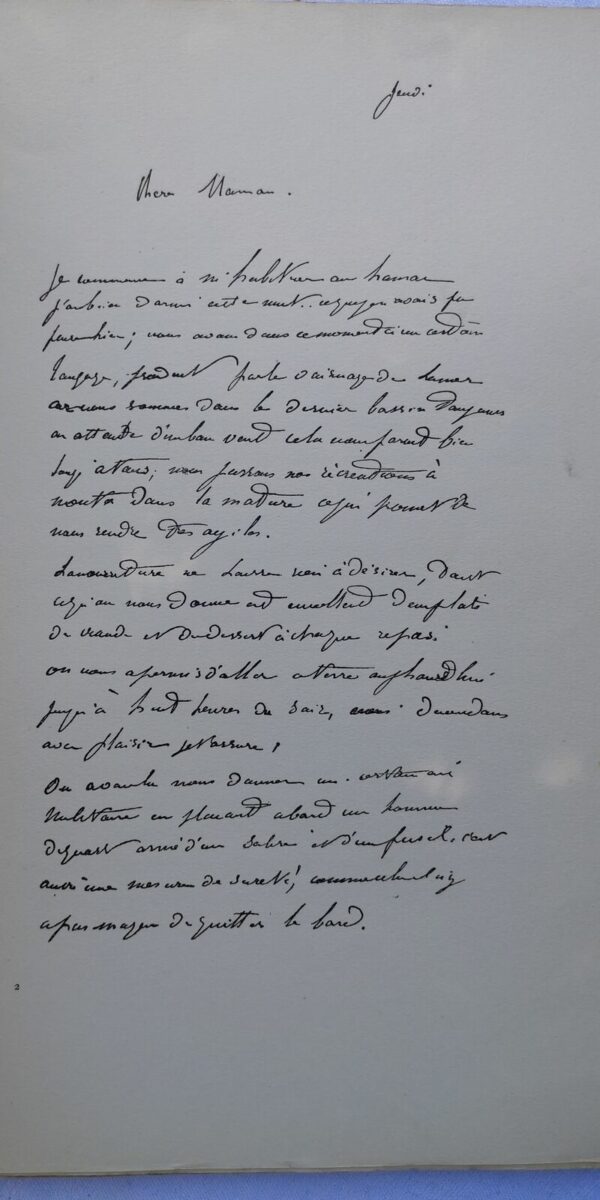 Jeudi
Chere Maman.
Je commence à m'habituer au hamac
j'ai bien dormi cette nuit.. ce que je n'avais fu
faire hier; nous avons dans ce moment ci un certain
tangage, produit par le voisinage de la mer
car nous sommes dans le dernier bassin toujours
en attente d'un bon vent cela nous parait bien
long à tous; nous passons nos récréations à
monter dans la mature ce qui permet de
nous rendre très agiles.
La nourriture ne laisse rien à désirer, tout
ce qu'on nous donne est excellent deux plats
de viande et du dessert à chaque repas
on nous a permis d'aller a terre aujourd'hui
jusqu'à huit heures du soir, nous descendons
avec plaisir je t'assure!
On a voulu nous donner un certain air
militaire en plaçant a bord un homme
de quart armé d'un sabre et d'un fusil, c'est
aussi une mesure de sureté! comme cela il n'y
a pas moyen de quitter le bord.
2